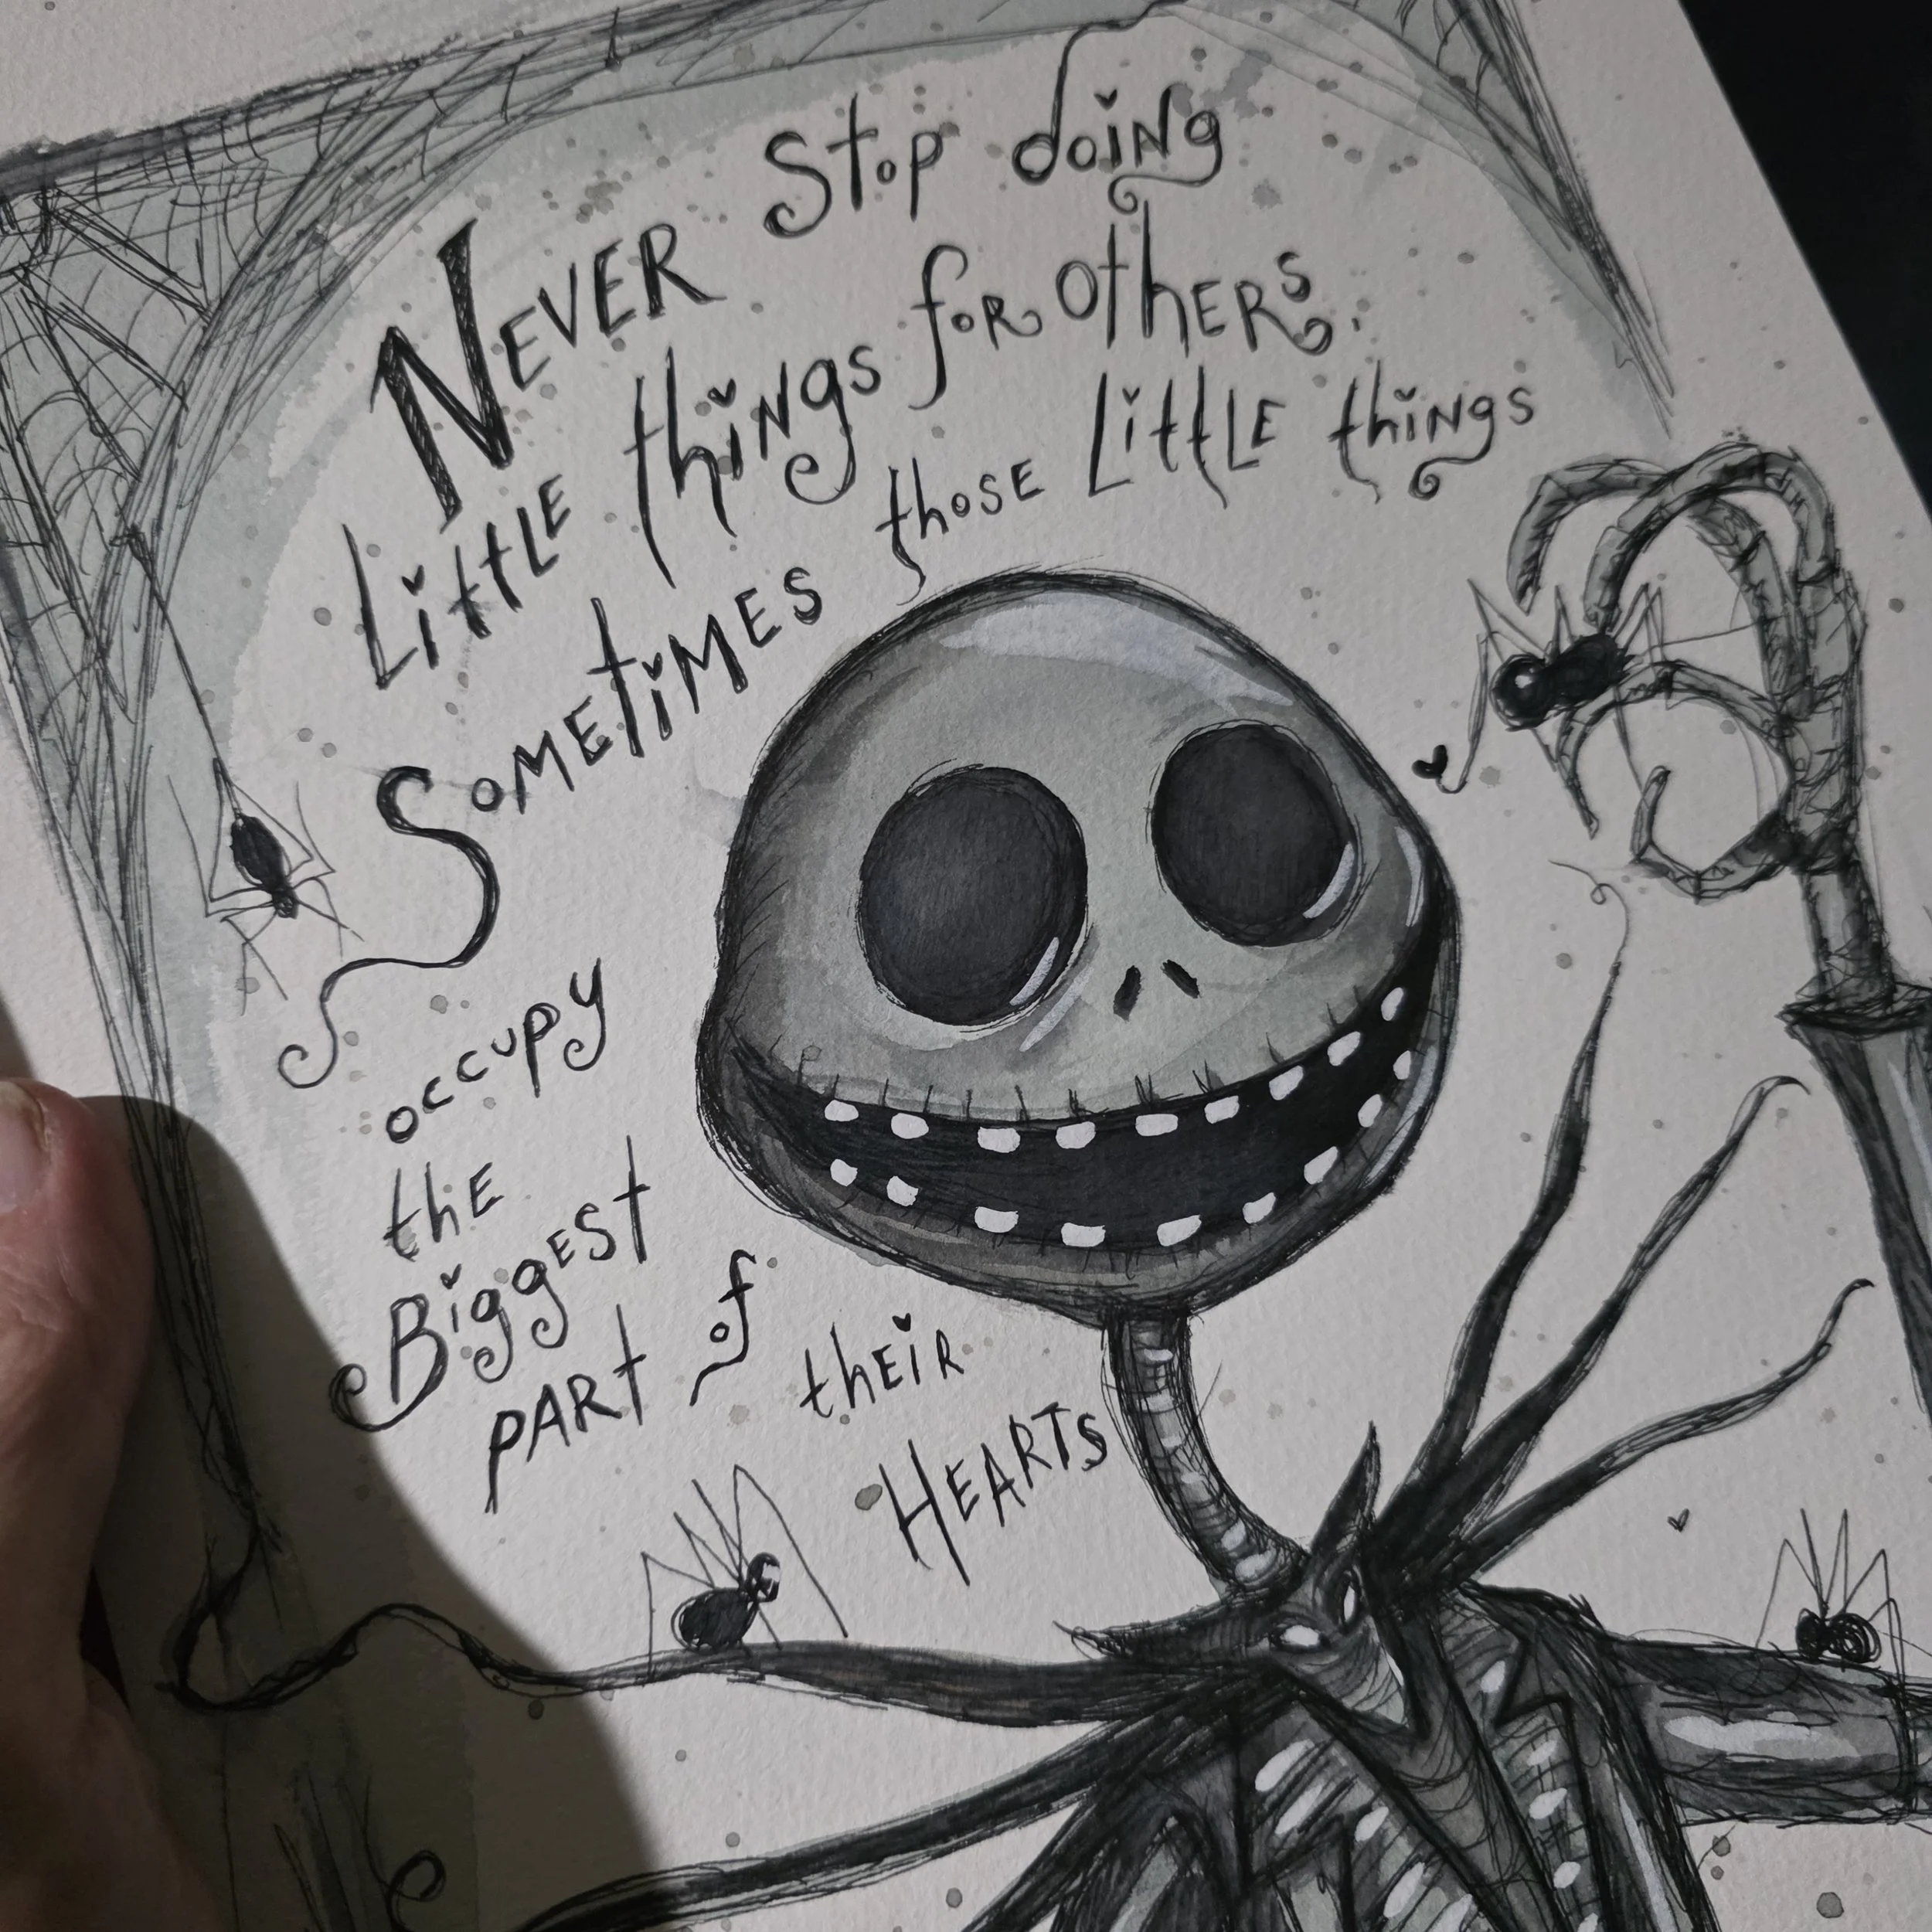 Never Stop doing
Little things for others.
Sometimes those Little things
occupy
the
Biggest
part of their
Hearts